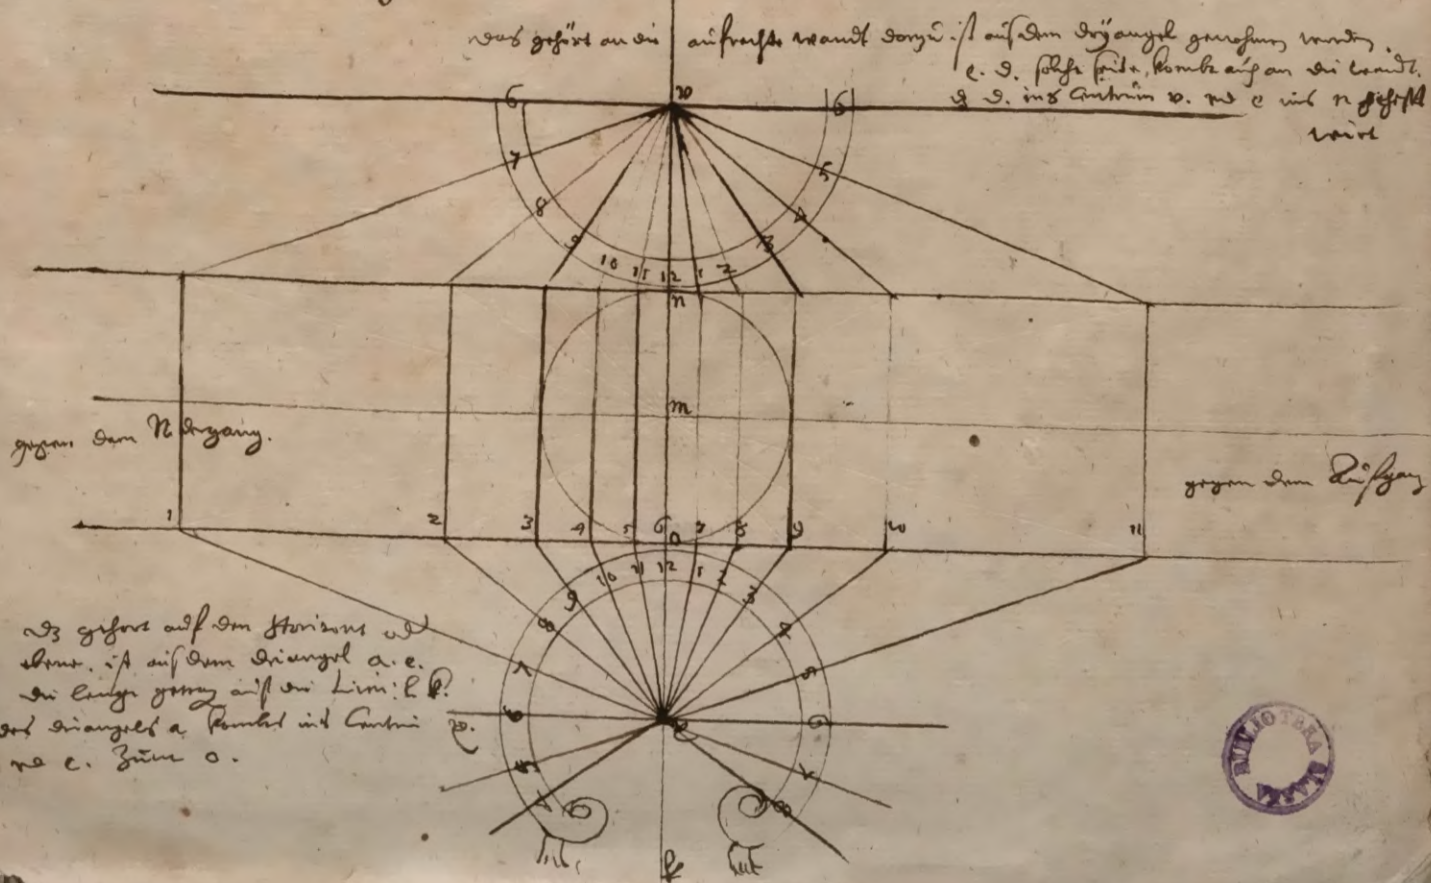 das gehört an die aufrechte wandt darzu ist aus dem dryangel genohmen worden.
c. d. solche seite, kombt auch an die wandt.
d. ins Centrum v. vnd c ins n
wirt
6 v 6
7 5
8 4
9 3
10 11 12 1 2
n
m
gegen dem Nidergang.
gegen dem Auffgang
1 2 3 4 5 6 7 8 9 10 11
o
10 11 12 1 2
9 3
8 4
dz gehört auf den Horizont
ebene. ist aus dem driangel a. c.
7 5
die lenge auf die Linie
6 6
des driangels a kombt ins Centrum
vnd c. zum o.
5 7
8
BIBLIOTECA